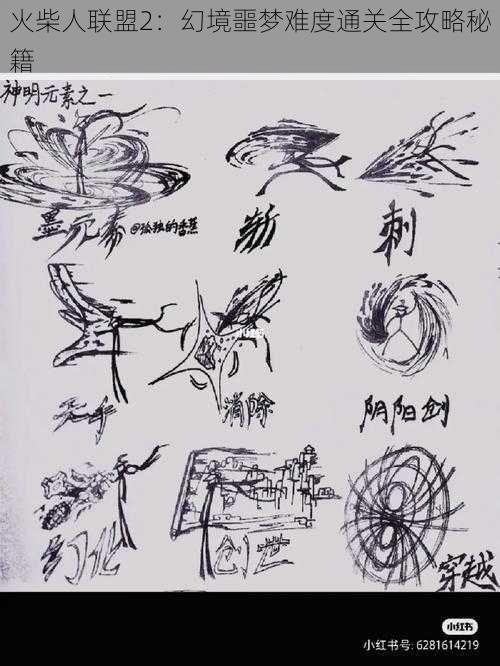 火柴人联盟2：幻境噩梦难度通关全攻略秘
籍
神明元素之一
墨元素 @孤独的香蕉
斩
刺
小红书
消除
阴阳剑
幻化
创世
穿越
小红书
小红书号: 6281614219